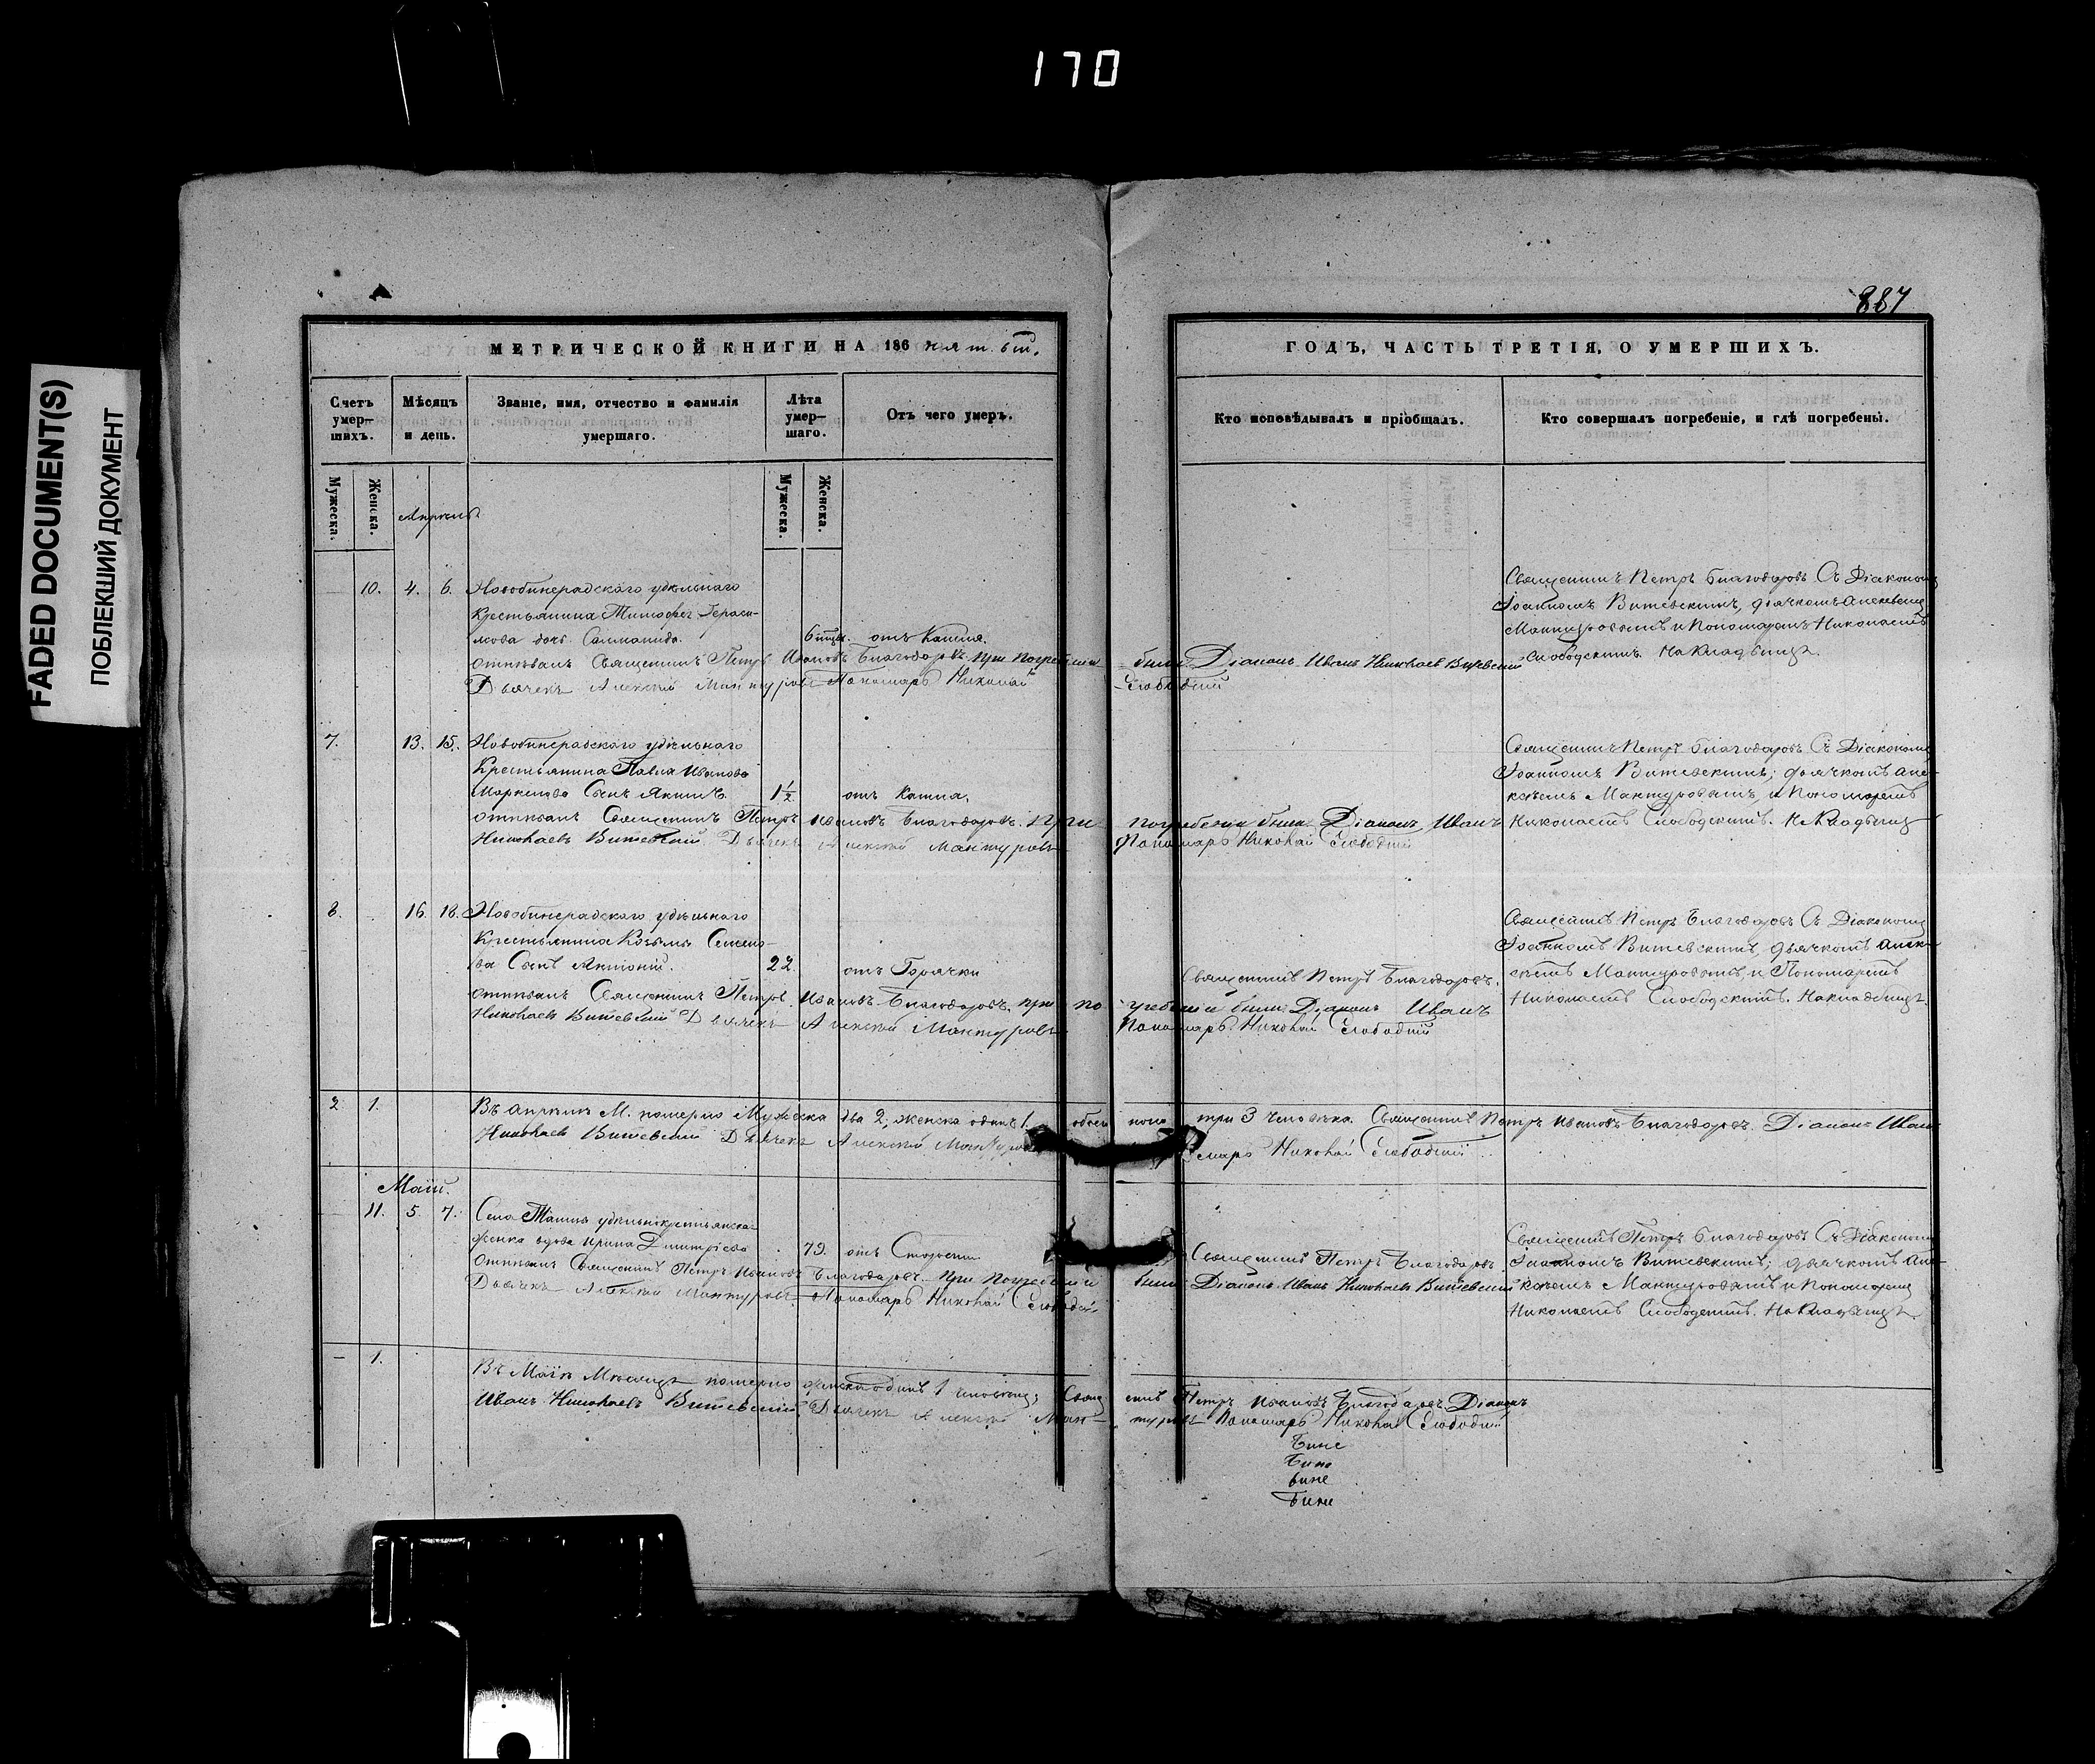 170
FADED DOCUMENT(S)
ПОБЛЕКШИЙ ДОКУМЕНТ
887
МЕТРИЧЕСКОЙ КНИГИ НА 186 пятый
Счетъ умер—шихъ.
Мѣсяцъ и день.
Званіе, имя, отчество и фамилія умершаго.
Лѣта умер—шаго.
Отъ чего умеръ.
Мужеска.
Женска.
Апрель
Мужеска.
Женска.
10. 4. 6. Новобинерадскаго удѣльнаго
крестьянина Тимофея Гераси-
мова дочь
6 отъ Кашля.
отпѣвалъ Священникъ Петръ Ивановъ Благодаровъ. при погребеніи были Діаконъ Иванъ Николаевъ Витевскій
Дьячекъ Алексѣй Мантуровъ Пономарь Николай Слободскій
7. 13. 15. Новобинерадскаго удѣльнаго
Крестьянина Павла Иванова
Маркелова Сынъ Якимъ. 1½ отъ Кашля.
отпѣвалъ Священникъ Петръ Ивановъ Благодаровъ. при погребеніи были Діаконъ Иванъ
Николаевъ Витевскій Дьячекъ Алексѣй Мантуровъ Пономарь Николай Слободскій
8. 16. 18. Новобинерадскаго удѣльнаго
Крестьянина Козьмы Семено-
ва Сынъ Антоній. 22 отъ Горячки
отпѣвалъ Священникъ Петръ Ивановъ Благодаровъ. при погребеніи были Діаконъ Иванъ
Николаевъ Витевскій Дьячекъ Алексѣй Мантуровъ Пономарь Николай Слободскій
2 1. Въ апрѣлѣ М. померло Мужеска два 2, женска одинъ 1. обоего пола три 3 человѣка. Священникъ Петръ Ивановъ Благодаровъ. Діаконъ Иванъ
Николаевъ Витевскій Дьячекъ Алексѣй Мантуровъ Николай Слободскій
Маій.
11. 5. 7. Села удѣльнокрестьянска-
женка вдова Ирина Димитріева 79. отъ Старости
отпѣвалъ Священникъ Петръ Ивановъ Благодаровъ. при погребеніи были Діаконъ Иванъ Николаевъ Витевскій
Дьячекъ Алексѣй Мантуровъ Пономарь Николай Слободскій
— 1. Въ Маіѣ Мѣсяцѣ померло женска одинъ 1 человѣкъ; Священникъ Петръ Ивановъ Благодаровъ Діаконъ
Иванъ Николаевъ Витевскій Дьячекъ Алексѣй Мантуровъ Пономарь Николай Слободскій
ГОДЪ, ЧАСТЬ ТРЕТІЯ, О УМЕРШИХЪ.
Кто исповѣдывалъ и пріобщалъ.
Кто совершалъ погребеніе, и гдѣ погребены.
Священникъ Петръ Благодаровъ Съ Діакономъ
Іоанномъ Витевскимъ, дьячкомъ Алексѣемъ
Мантуровымъ и Пономаремъ Николаемъ
Слободскимъ. На Кладбищѣ.
Священникъ Петръ Благодаровъ Съ Діакономъ
Іоанномъ Витевскимъ; дьячкомъ Але-
ксѣемъ Мантуровымъ, и Пономаремъ
Николаемъ Слободскимъ. На Кладбищѣ
Священникъ Петръ Благодаровъ.
Священникъ Петръ Благодаровъ Съ Діакономъ
Іоанномъ Витевскимъ, дьячкомъ Але-
ксѣемъ Мантуровымъ, и Пономаремъ
Николаемъ Слободскимъ. На Кладбищѣ
Священникъ Петръ Благодаровъ
Священникъ Петръ Благодаровъ Съ Діакономъ
Іоанномъ Витевскимъ; дьячкомъ Але-
ксѣемъ Мантуровымъ и Пономаремъ
Николаемъ Слободскимъ. На Кладбищѣ